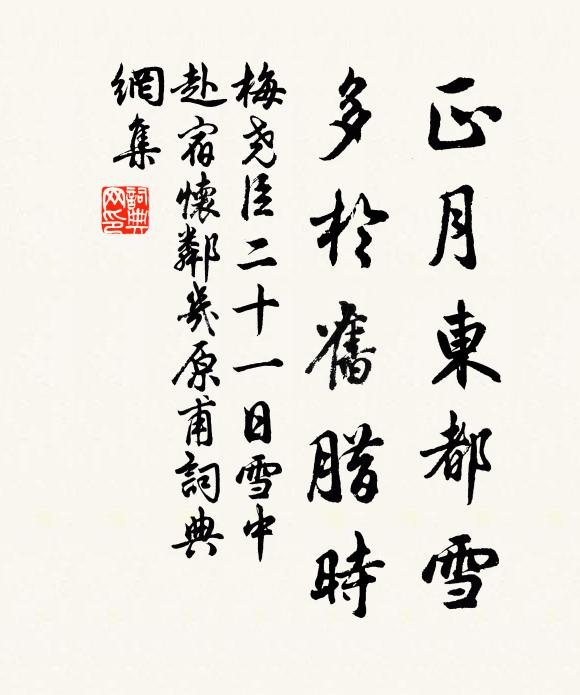 正月東都雪
多於舊腊時
梅尧臣二十一日雪中
赴宿懷鄰幾原甫詞典
網集
詞典网印